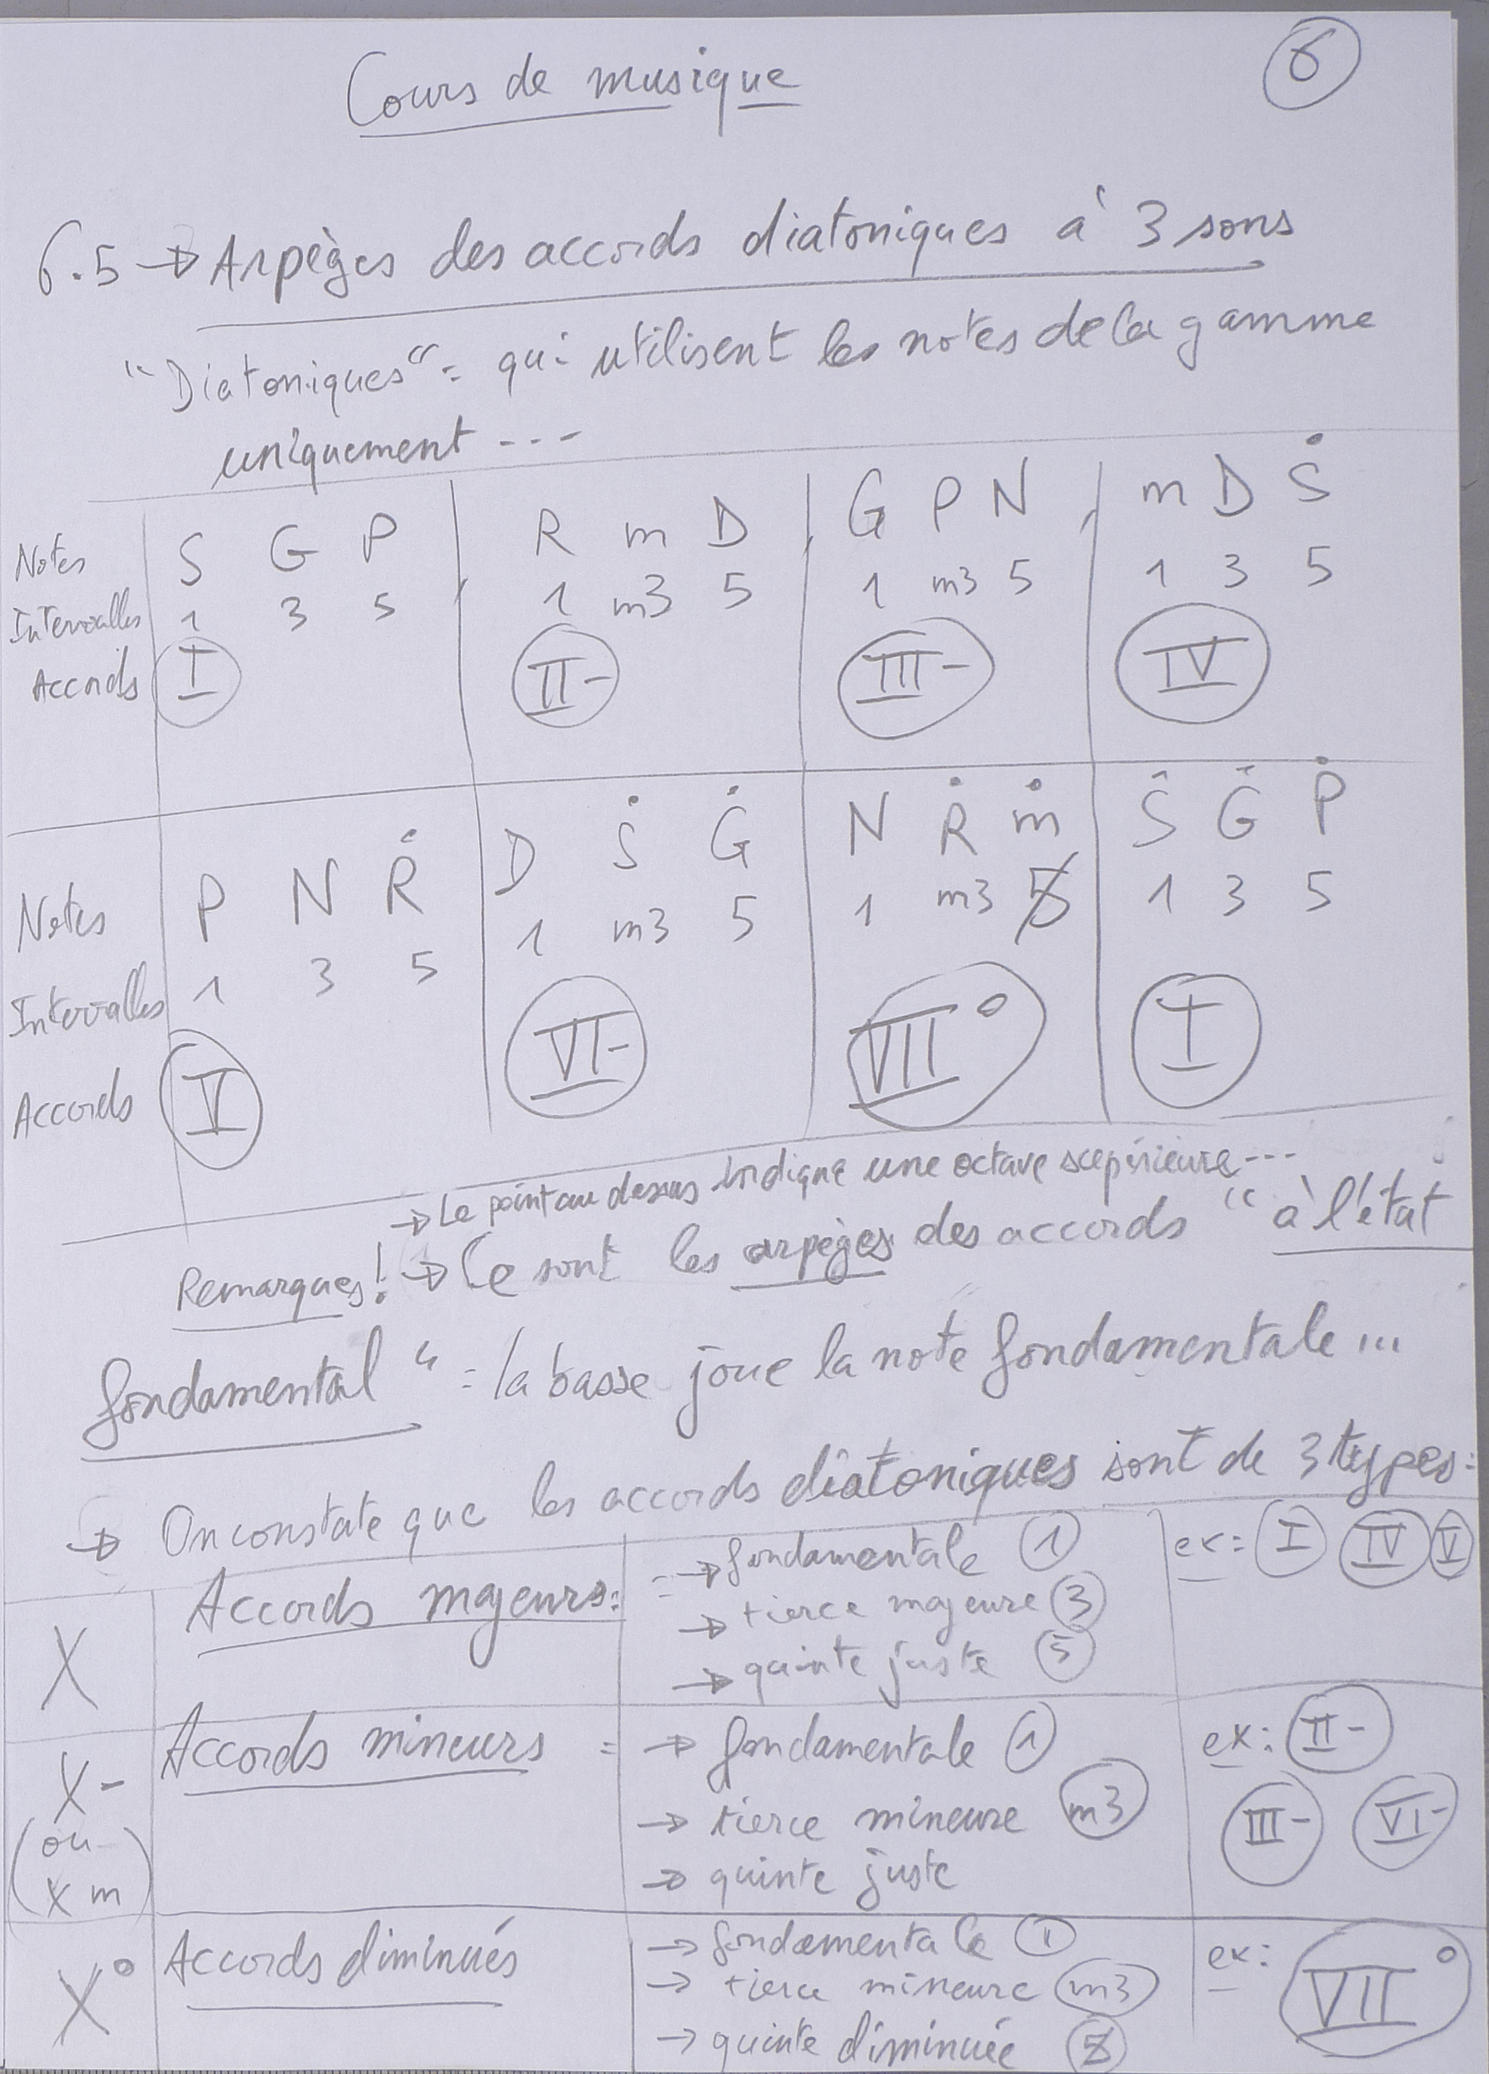 Cours de musique
6
6.5 → Arpèges des accords diatoniques à 3 sons
"Diatoniques" = qui utilisent les notes de la gamme
uniquement ---
Notes S G P | R m D | G P N | m D Ṡ
Intervalles 1 3 5 | 1 m3 5 | 1 m3 5 | 1 3 5
Accords I | II- | III- | IV
Notes P N Ṙ | D Ṡ Ġ | N Ṙ ṁ | Ṡ Ġ Ṗ
Intervalles 1 3 5 | 1 m3 5 | 1 m3 5̸ | 1 3 5
Accords V | VI- | VII° | I
→ Le point au dessus indique une octave supérieure ---
Remarques! → Ce sont les arpèges des accords "à l'état
fondamental" = la basse joue la note fondamentale ...
→ On constate que les accords diatoniques sont de 3 types:
X Accords majeurs: = → fondamentale 1 ex: I IV V
→ tierce majeure 3
→ quinte juste 5
X- Accords mineurs = → fondamentale 1 ex: II-
(ou → tierce mineure m3 III- VI-
X m) → quinte juste
X° Accords diminués → fondamentale 1 ex: VII°
→ tierce mineure m3
→ quinte diminuée 5̸